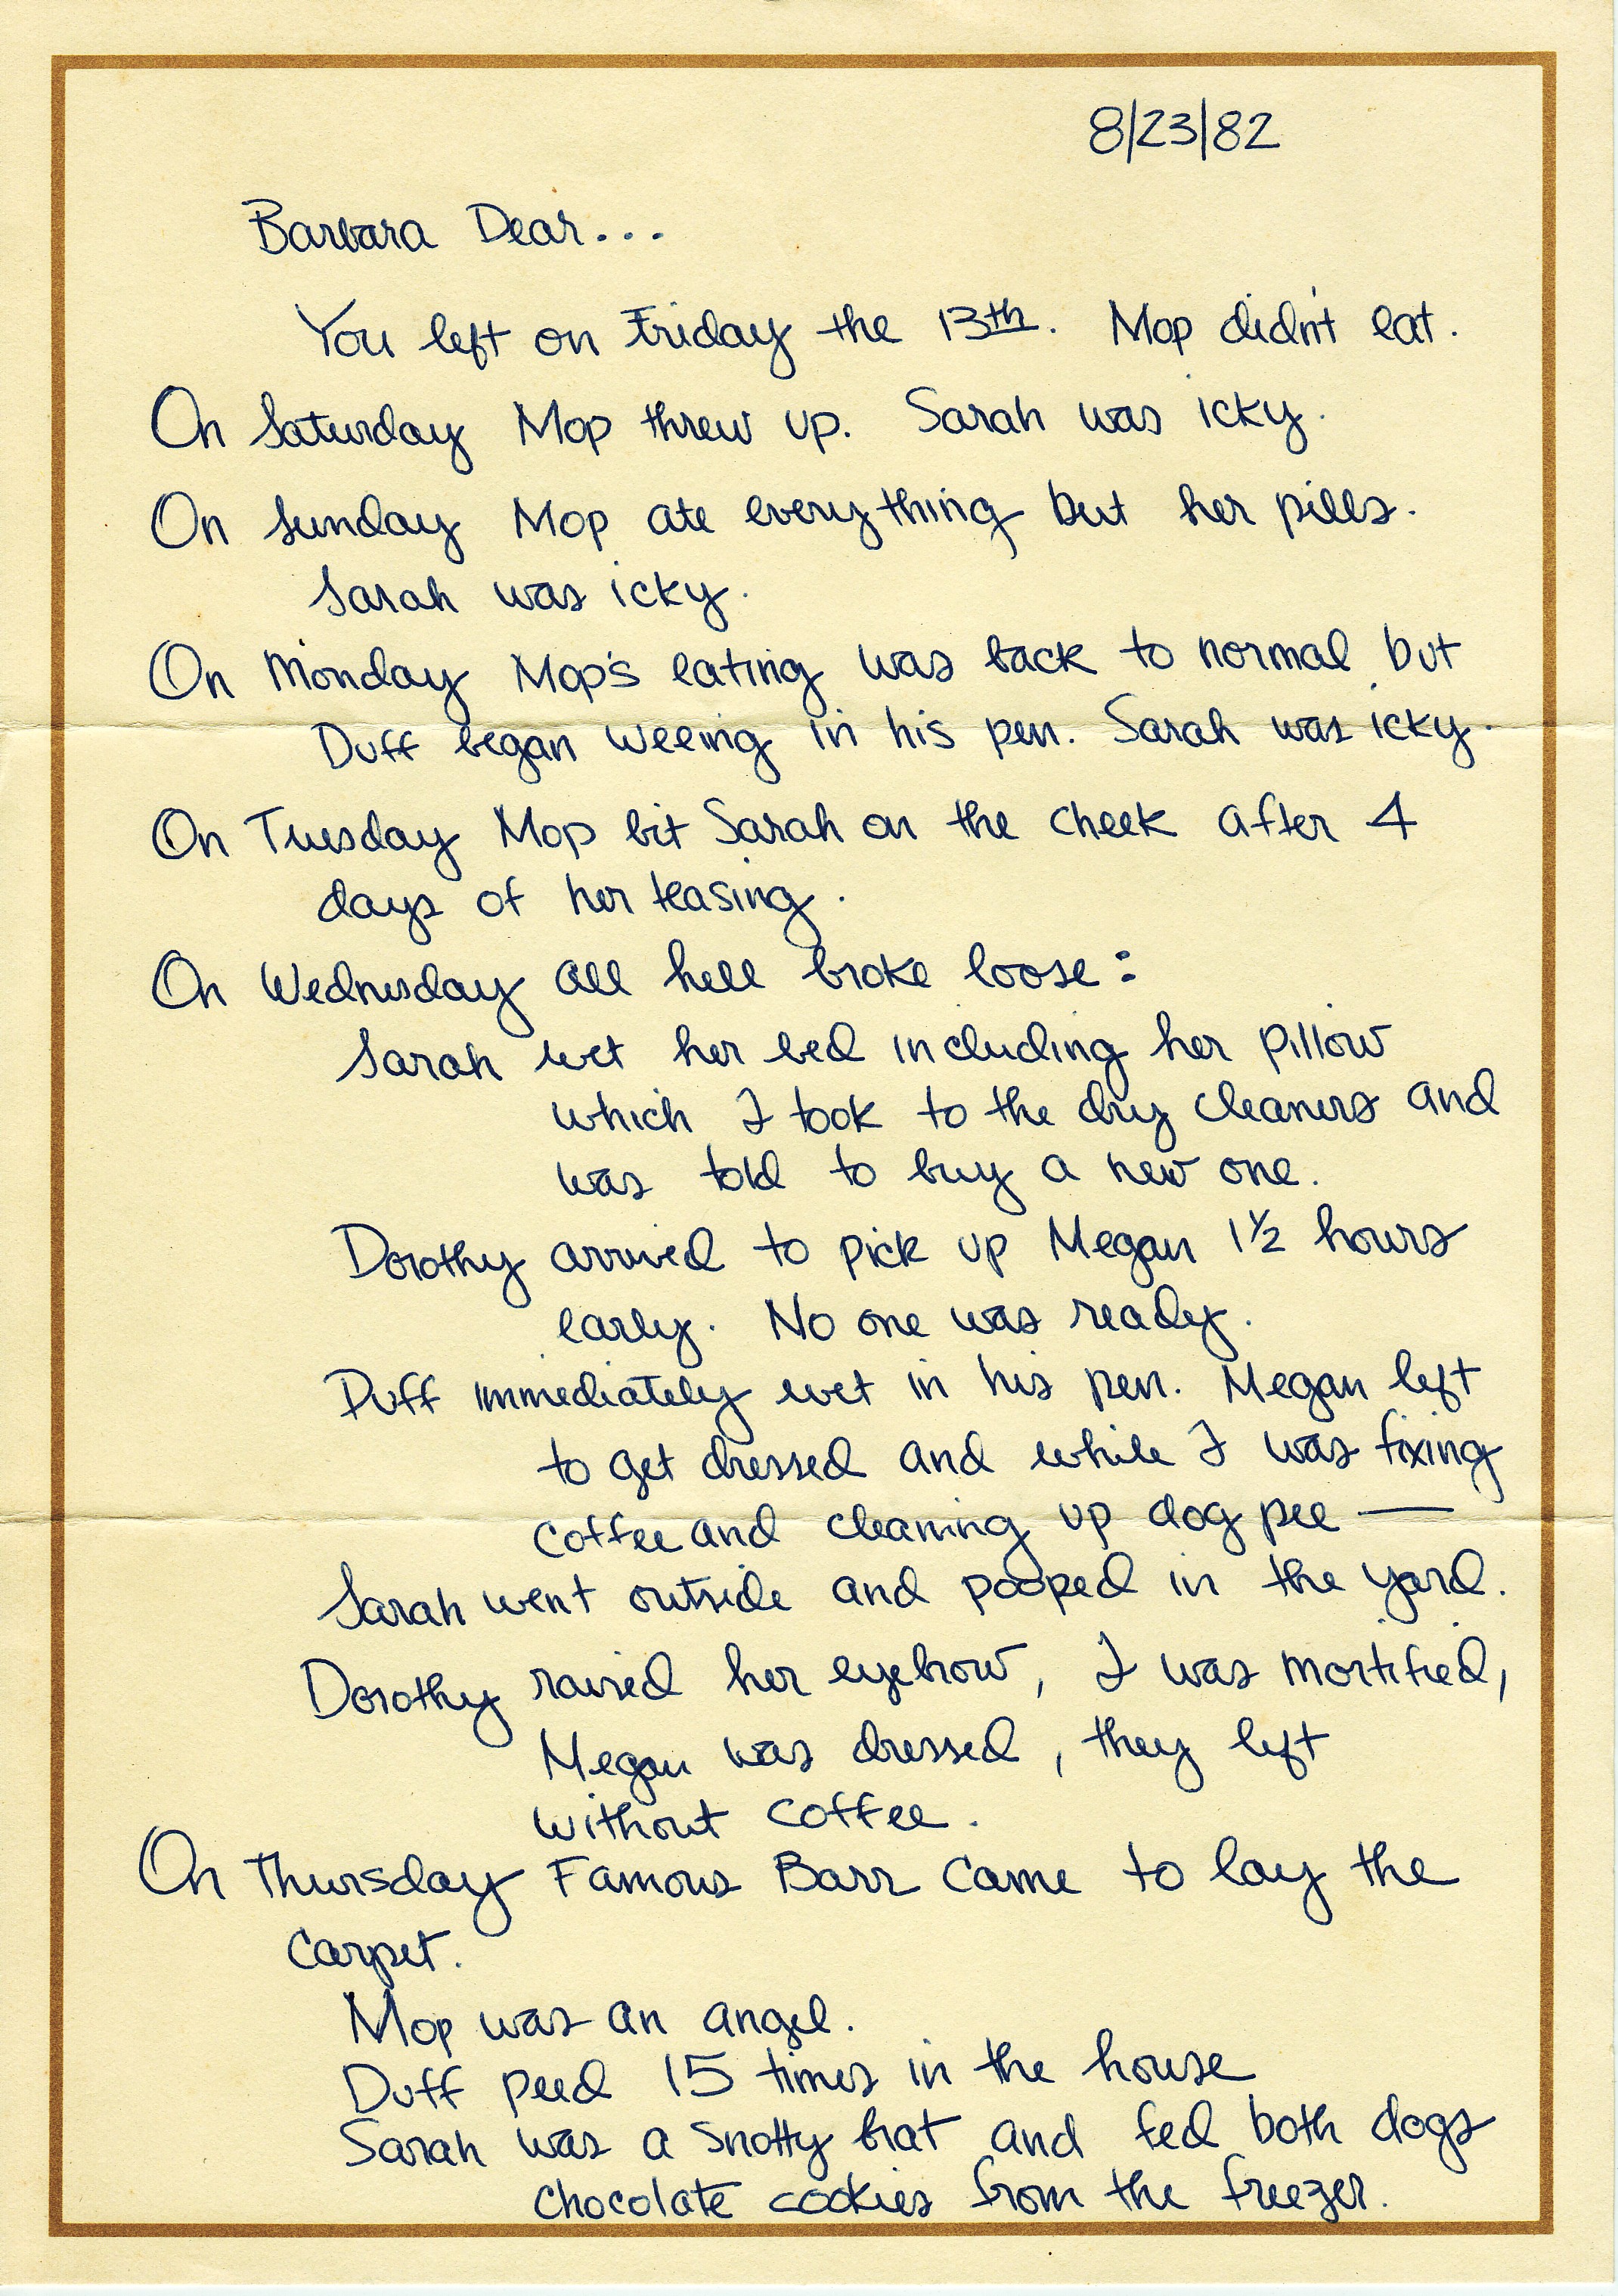 8/23/82
Barbara Dear...
You left on Friday the 13th. Mop didn't eat.
On Saturday Mop threw up. Sarah was icky.
On Sunday Mop ate everything but her pills.
Sarah was icky.
On Monday Mop's eating was back to normal but
Duff began weeing in his pen. Sarah was icky.
On Tuesday Mop bit Sarah on the cheek after 4
days of her teasing.
On Wednesday all hell broke loose:
Sarah wet her bed including her pillow
which I took to the dry cleaners and
was told to buy a new one.
Dorothy arrived to pick up Megan 1½ hours
early. No one was ready.
Duff immediately wet in his pen. Megan left
to get dressed and while I was fixing
coffee and cleaning up dog pee —
Sarah went outside and pooped in the yard.
Dorothy raised her eyebrow, I was mortified,
Megan was dressed, they left
without coffee.
On Thursday Famous Barr came to lay the
carpet.
Mop was an angel.
Duff peed 15 times in the house
Sarah was a snotty brat and fed both dogs
chocolate cookies from the freezer.